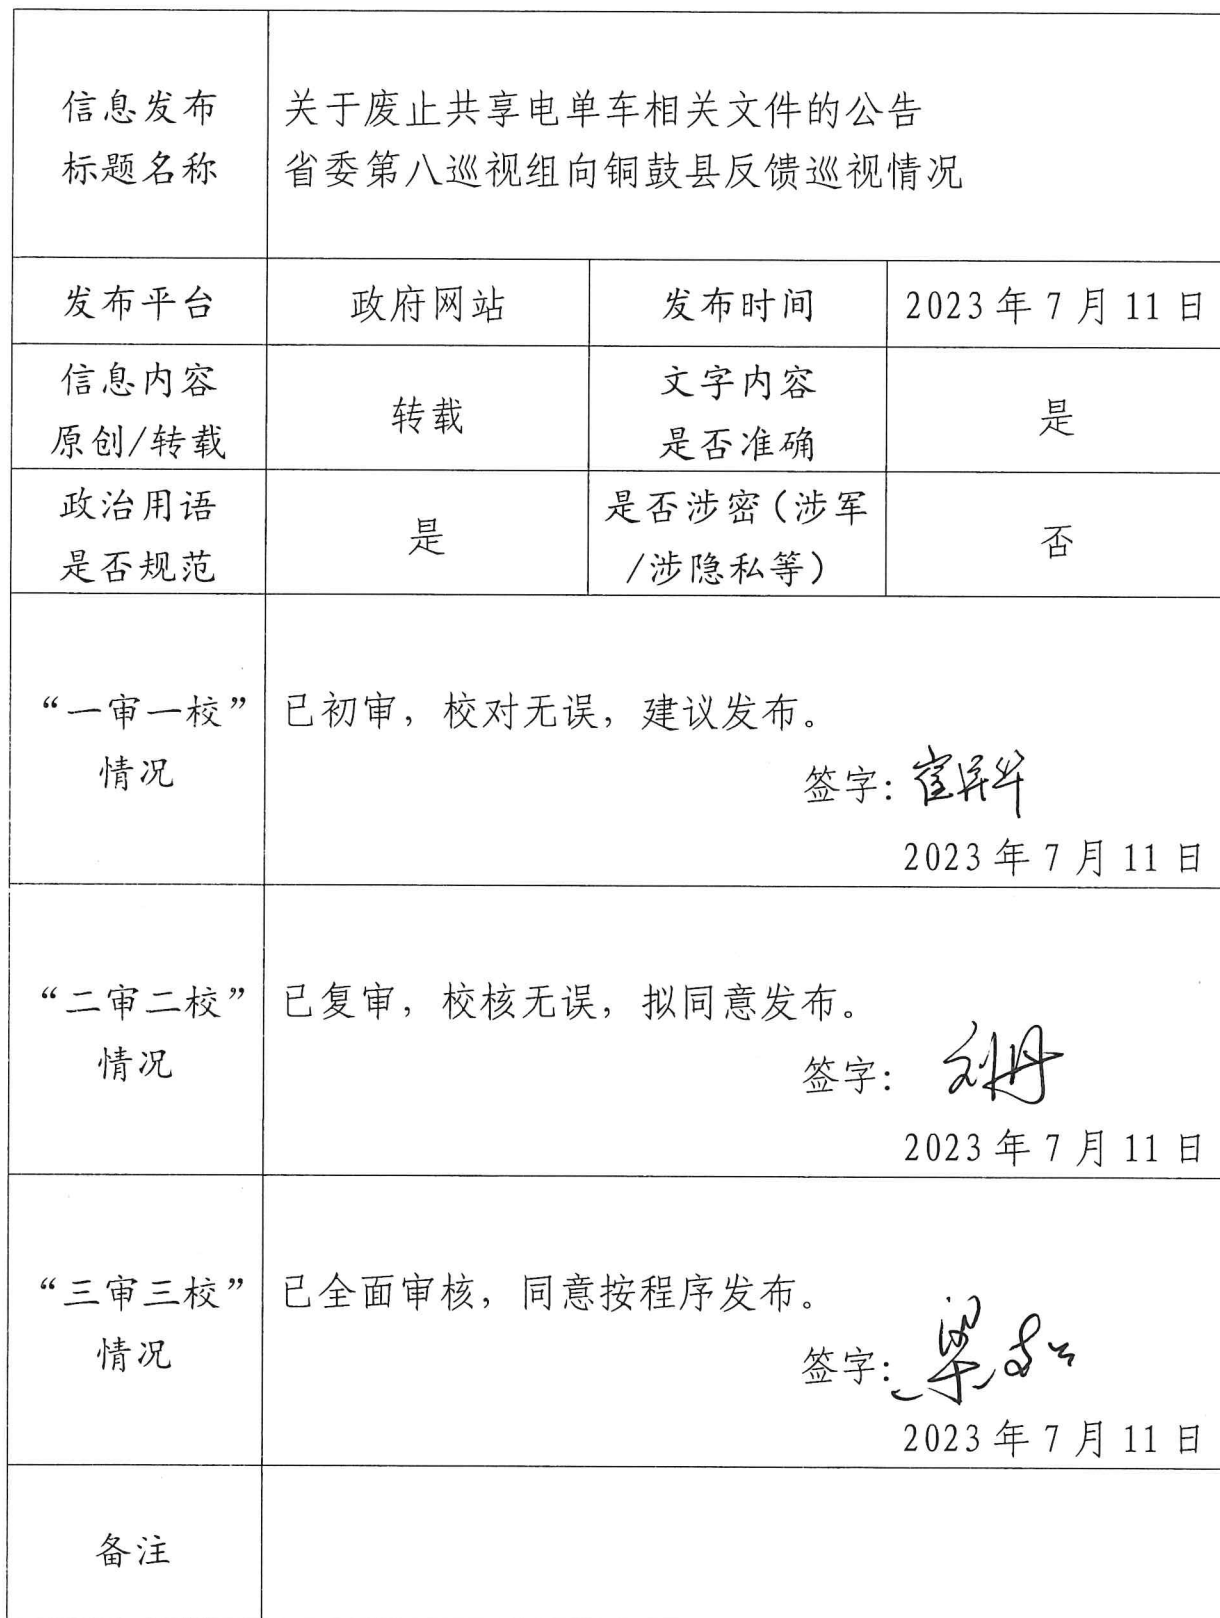 信息发布
标题名称
关于废止共享电单车相关文件的公告
省委第八巡视组向铜鼓县反馈巡视情况
发布平台
政府网站
发布时间
2023年7月11日
信息内容
原创/转载
转载
文字内容
是否准确
是
政治用语
是否规范
是
是否涉密(涉军
/涉隐私等)
否
“一审一校”
情况
已初审，校对无误，建议发布。
签字:
2023年7月11日
“二审二校”
情况
已复审，校核无误，拟同意发布。
签字: 刘丹
2023年7月11日
“三审三校”
情况
已全面审核，同意按程序发布。
签字: 梁
2023年7月11日
备注